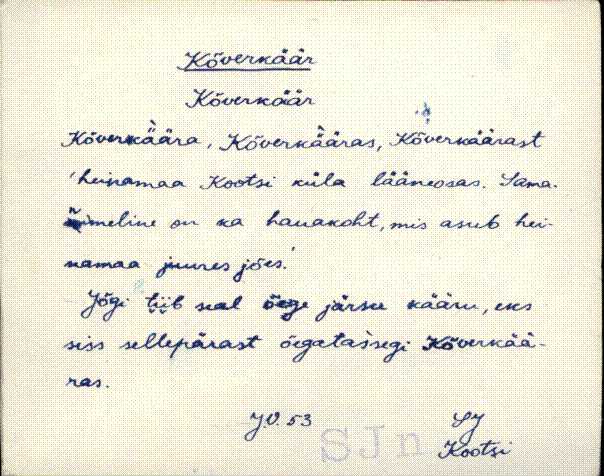 Kõverkäär
Kõverkäär
Kõverkäära, Kõverkääras, Kõverkäärast
'heinamaa Kootsi küla lääneosas. Sama-
nimeline on ka hauakoht, mis asub hei-
namaa juures jões.'
Jõgi tiib seal õege järsu kääru, eks
siss sellepärast õegatassegi Kõverkää-
ras.
J.V. 53
Kootsi
SJn